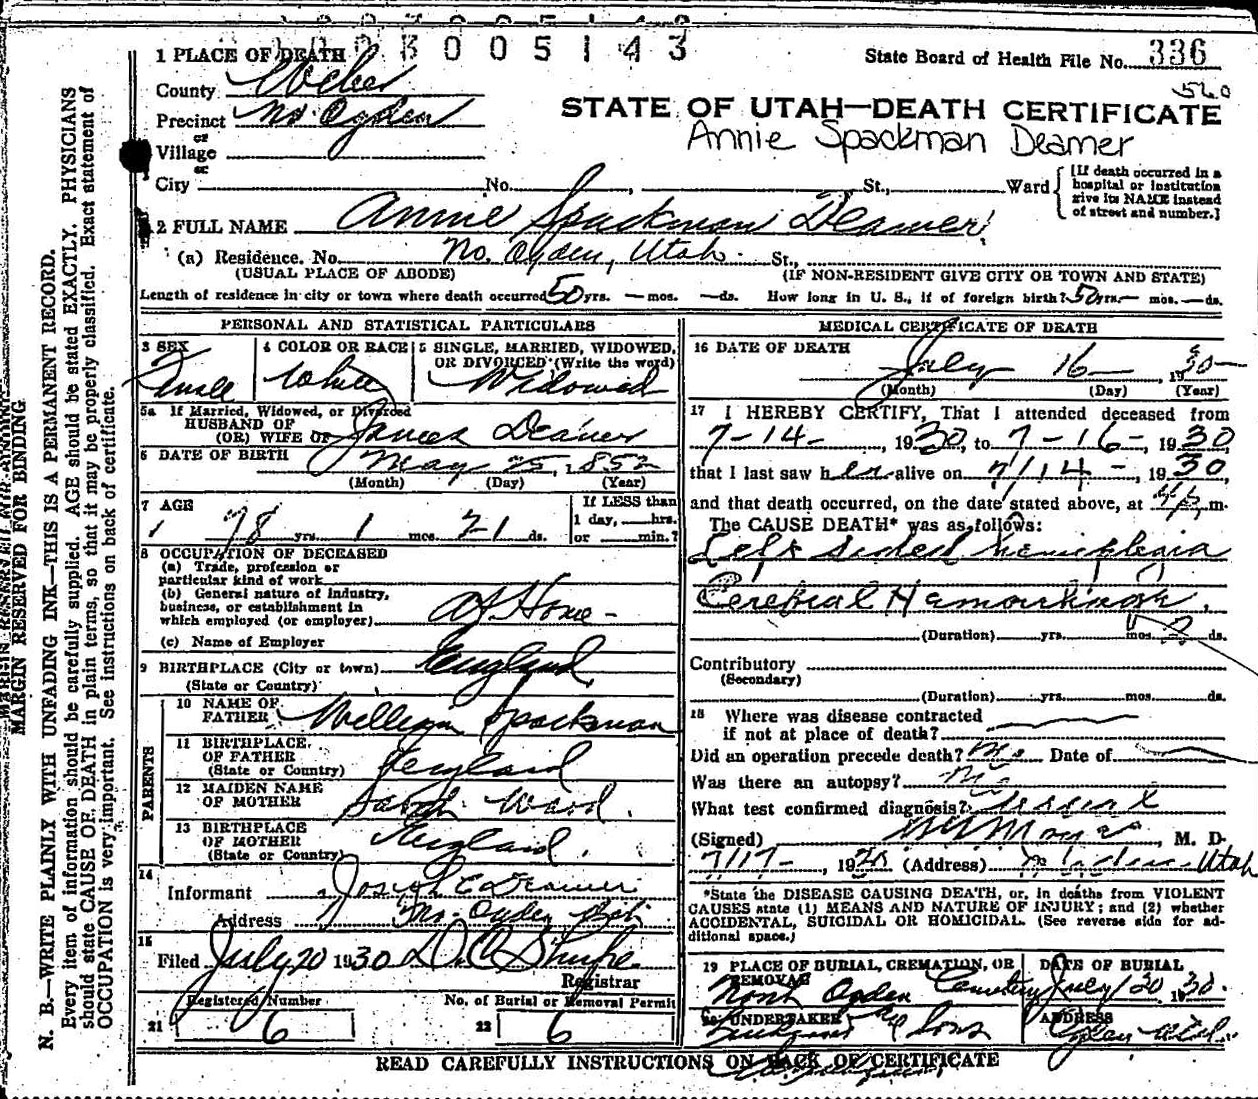 0 0 5 1 4 3
1 PLACE OF DEATH
State Board of Health File No. 336
County Weber
520
Precinct No. Ogden
STATE OF UTAH—DEATH CERTIFICATE
or
Village
Annie Spackman Deamer
or
City No. , St., Ward
[If death occurred in a hospital or institution give its NAME instead of street and number.]
2 FULL NAME Annie Spackman Deamer
(a) Residence. No. No. Ogden, Utah. St.,
(USUAL PLACE OF ABODE) (IF NON-RESIDENT GIVE CITY OR TOWN AND STATE)
Length of residence in city or town where death occurred 50 yrs. — mos. — ds. How long in U. S., if of foreign birth? 50 yrs. — mos. — ds.
PERSONAL AND STATISTICAL PARTICULARS
3 SEX 4 COLOR OR RACE 5 SINGLE, MARRIED, WIDOWED,
OR DIVORCED (Write the word)
Female White Widowed
5a If Married, Widowed, or Divorced
HUSBAND OF
(OR) WIFE OF James Deamer
6 DATE OF BIRTH May 25, 1852
(Month) (Day) (Year)
7 AGE If LESS than
78 yrs. 1 mos. 21 ds. 1 day, hrs.
or min.?
8 OCCUPATION OF DECEASED
(a) Trade, profession or
particular kind of work
(b) General nature of industry,
business, or establishment in
which employed (or employer) At Home —
(c) Name of Employer
9 BIRTHPLACE (City or town) England
(State or Country)
PARENTS
10 NAME OF
FATHER William Spackman
11 BIRTHPLACE
OF FATHER England
(State or Country)
12 MAIDEN NAME
OF MOTHER Sarah Ward.
13 BIRTHPLACE
OF MOTHER England.
(State or Country)
14
Informant Joseph E Deamer
Address No. Ogden
15
Filed July 20 1930 D. C. Shupe
Registrar
Registered Number No. of Burial or Removal Permit
21 6 22 6
MEDICAL CERTIFICATE OF DEATH
16 DATE OF DEATH
July 16 — , 1930 —
(Month) (Day) (Year)
17 I HEREBY CERTIFY, That I attended deceased from
7-14-, 1930, to 7-16-, 1930
that I last saw her alive on 7/14-, 1930,
and that death occurred, on the date stated above, at m.
The CAUSE DEATH* was as follows:
Left sided hemiplegia
Cerebral Hemorrhage.
(Duration) yrs. mos. 2 ds.
Contributory
(Secondary)
(Duration) yrs. mos. ds.
18 Where was disease contracted
if not at place of death?
Did an operation precede death? No Date of
Was there an autopsy? No
What test confirmed diagnosis?
(Signed) , M. D.
7/17-, 1930 (Address) Utah
*State the DISEASE CAUSING DEATH, or, in deaths from VIOLENT
CAUSES state (1) MEANS AND NATURE OF INJURY; and (2) whether
ACCIDENTAL, SUICIDAL OR HOMICIDAL. (See reverse side for ad-
ditional space.)
19 PLACE OF BURIAL, CREMATION, OR DATE OF BURIAL
REMOVAL
North Ogden Cemetery July 20 1930.
20 UNDERTAKER ADDRESS
& Sons Ogden Utah.
READ CAREFULLY INSTRUCTIONS ON BACK OF CERTIFICATE
MARGIN RESERVED FOR BINDING
N. B.—WRITE PLAINLY WITH UNFADING INK—THIS IS A PERMANENT RECORD.
Every item of information should be carefully supplied. AGE should be stated EXACTLY. PHYSICIANS
should state CAUSE OF DEATH in plain terms, so that it may be properly classified. Exact statement of
OCCUPATION is very important. See instructions on back of certificate.